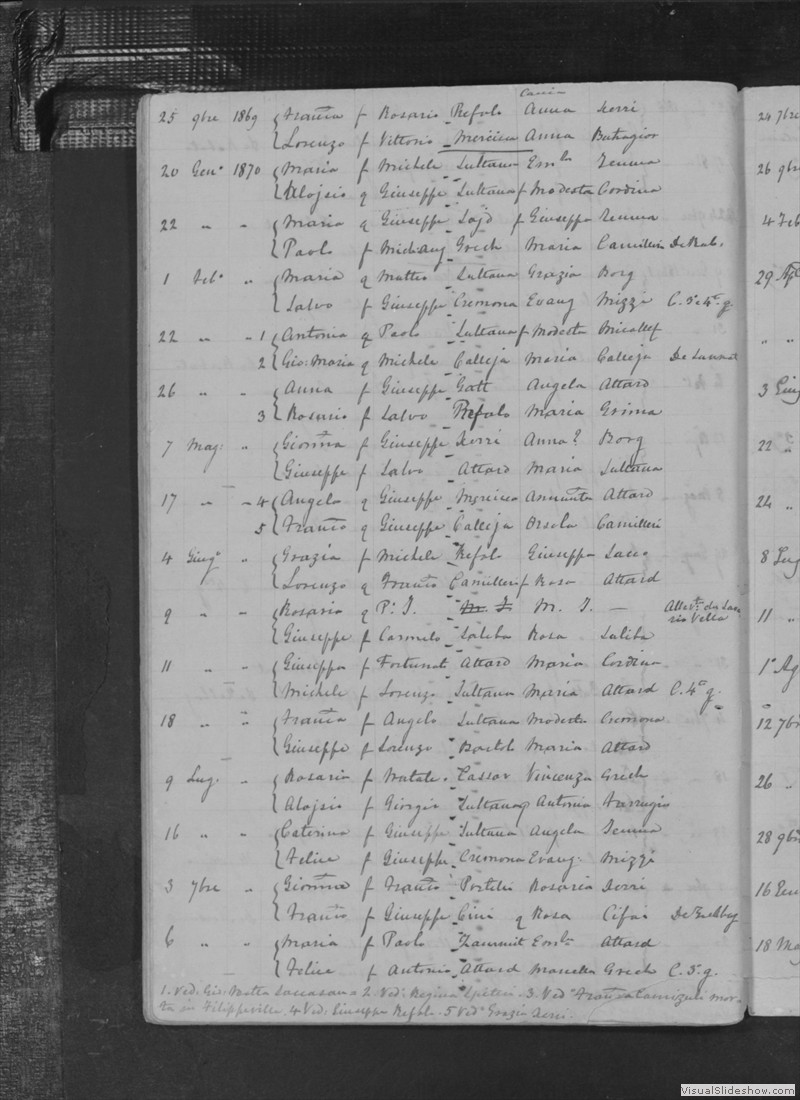 Cassia
25 9bre 1869 Franca f Rosario Refalo Anna Xerri
Lorenzo f Vittorio Mercieca Anna Buttigieg
20 Genº 1870 Maria f Michele Sultana Emla Zemma
Alojsio q Giuseppe Sultana f Modesta Cordina
22 " " Maria q Giuseppe f Giuseppa Zemma
Paolo f Mich:ang Grech Maria Camilleri De Rab.
1 Febº " Maria q Matteo Sultana Grazia Borg
Salvo f Giuseppe Cremona Evang Mizzi C. 3º e 4º g.
22 " " 1 Antonia q Paolo Sultana f Modesta Micallef
2 Gio: Maria q Michele Calleja Maria Calleja
26 " " Anna f Giuseppe Gatt Angela Attard
3 Rosario f Salvo Refalo Maria Grima
7 Mag: " Gionna f Giuseppe Xerri Anna Borg
Giuseppe f Salvo Attard Maria Sultana
17 " " 4 Angela q Giuseppe Mercieca Annunta Attard
5 Franco q Giuseppe Calleja Orsola Camilleri
4 Giugº " Grazia f Michele Refalo Giuseppa Sacco
Lorenzo q Franco Camilleri f Rosa Attard
9 " " Rosaria q P: I. M. I. —
Giuseppe f Carmelo Saliba Rosa Saliba
11 " " Giuseppa f Fortunat Attard Maria Cordina
Michele f Lorenzo Sultana Maria Attard C. 4º g.
18 " " Franca f Angelo Sultana Modesta Cremona
Giuseppe f Lorenzo Bartolo Maria Attard
9 Lug. " Rosaria f Natale Cassar Vincenza Grech
Alojsio f Giorgio Sultana q Antonia Farrugia
16 " " Caterina f Giuseppe Sultana Angela Zemma
Felice f Giuseppe Cremona Evang. Mizzi
3 7bre " Gionna f Franco Portelli Rosaria Xerri
Franco f Giuseppe Cini q Rosa Cifai
6 " " Maria f Paolo Zammit Emla Attard
Felice f Antonio Attard Grech C. 3º g.
1. Ved: Gio: Matta 2. Ved: Regina 3. Ved: Franca mor-
ta in Filippeville 4 Ved: Giuseppa Refalo. 5 Ved: Grazia Xerri.
24 7bre
26 9bre
4 Feb
29 Apl
" "
3 Giug
22 "
24 "
8 Lug
11 "
1º Ag
12 7br
26 "
28 9br
16
18 Ma
VisualSlideshow.com